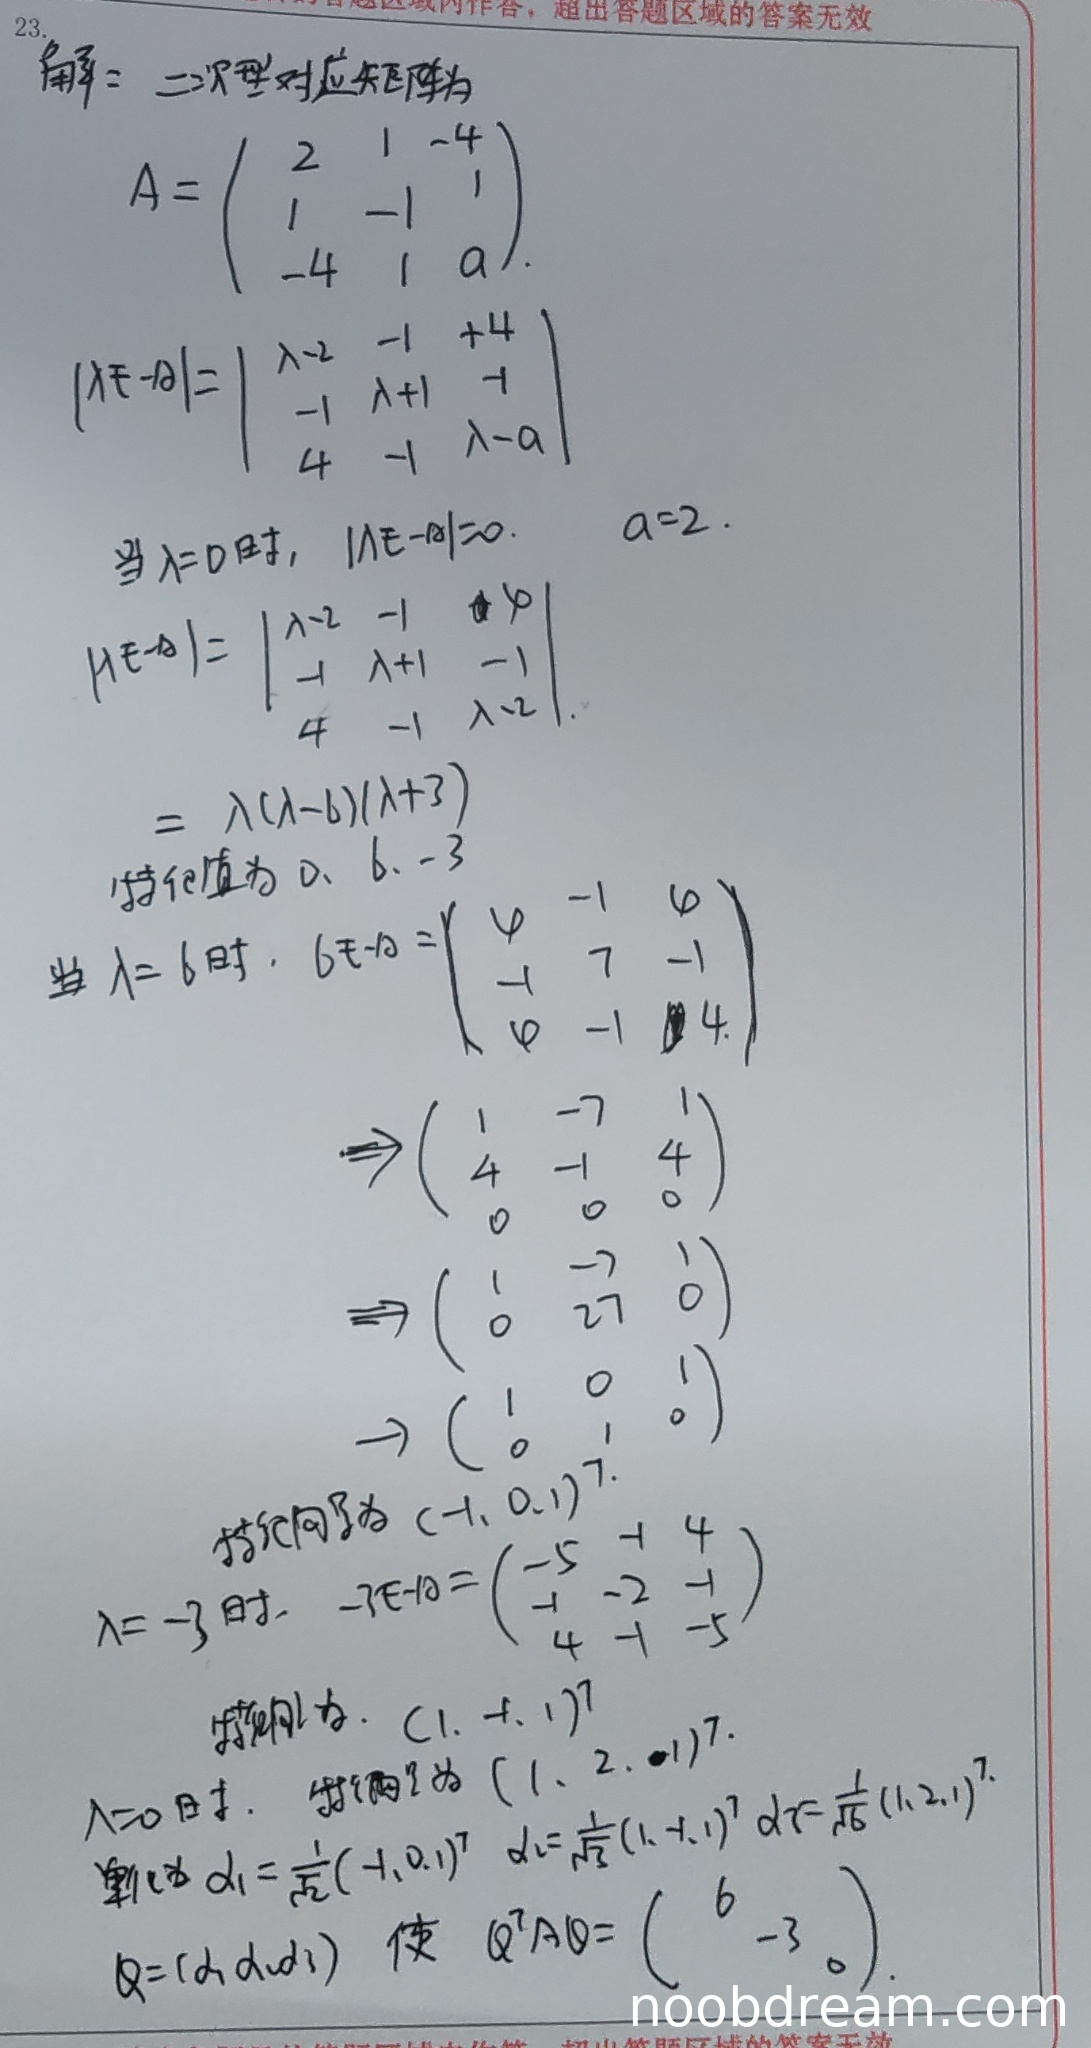 答题区域内作答，超出答题区域的答案无效
23.
解: 二次型对应矩阵为
A = ( 2 1 -4
1 -1 1
-4 1 a ).
|λE-A| = | λ-2 -1 +4
-1 λ+1 -1
4 -1 λ-a |
当 λ=0 时, |λE-A|=0. a=2.
|λE-A| = | λ-2 -1 4
-1 λ+1 -1
4 -1 λ-2 |.
= λ(λ-6)(λ+3)
特征值为 0、6、-3
当 λ=6 时. 6E-A = ( 4 -1 4
-1 7 -1
4 -1 4. )
⇒ ( 1 -7 1
4 -1 4
0 0 0 )
⇒ ( 1 -7 1
0 27 0 )
→ ( 1 0 1
0 1 0 )
特征向量为 (-1、0、1)ᵀ.
λ=-3 时. -3E-A = ( -5 -1 4
-1 -2 -1
4 -1 -5 )
特征向量为. (1、-1、1)ᵀ
λ=0 时. 特征向量为 (1、2、1)ᵀ.
单位化为 α₁ = 1/√2 (-1,0,1)ᵀ α₂ = 1/√3 (1,-1,1)ᵀ α₃ = 1/√6 (1,2,1)ᵀ.
Q=(α₁ α₂ α₃) 使 QᵀAQ = ( 6
-3
0 ).
noobdream.com
超出答题区域的答案无效